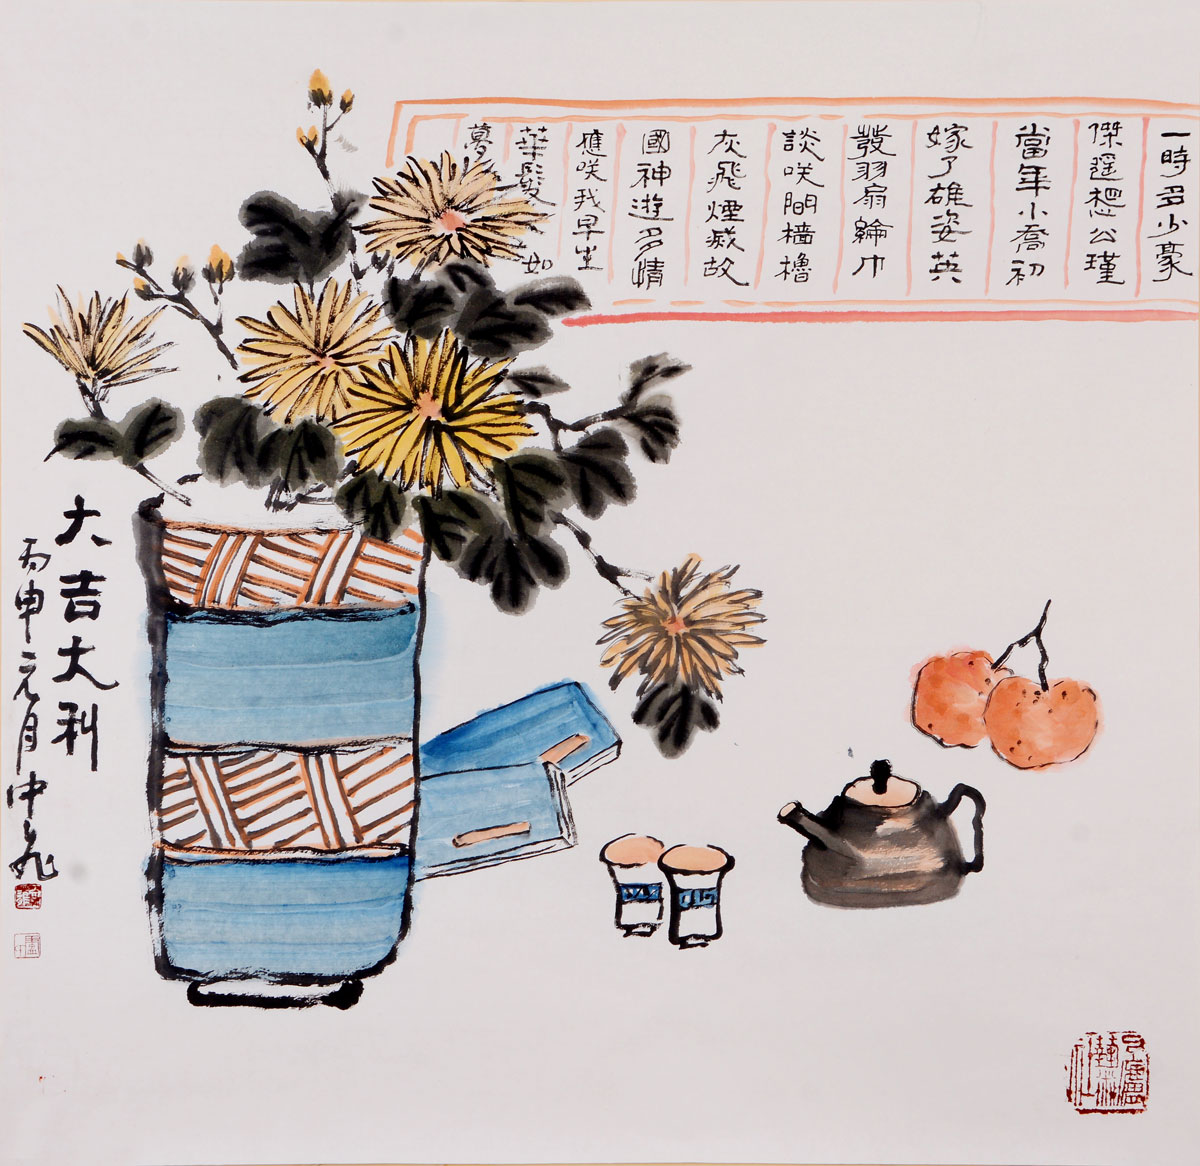 一時多少豪
傑遥想公瑾
當年小喬初
嫁了雄姿英
發羽扇綸巾
談咲間檣櫓
灰飛煙滅故
國神遊多情
應咲我早生
華髮如
夢
大吉大利
丙申元月中